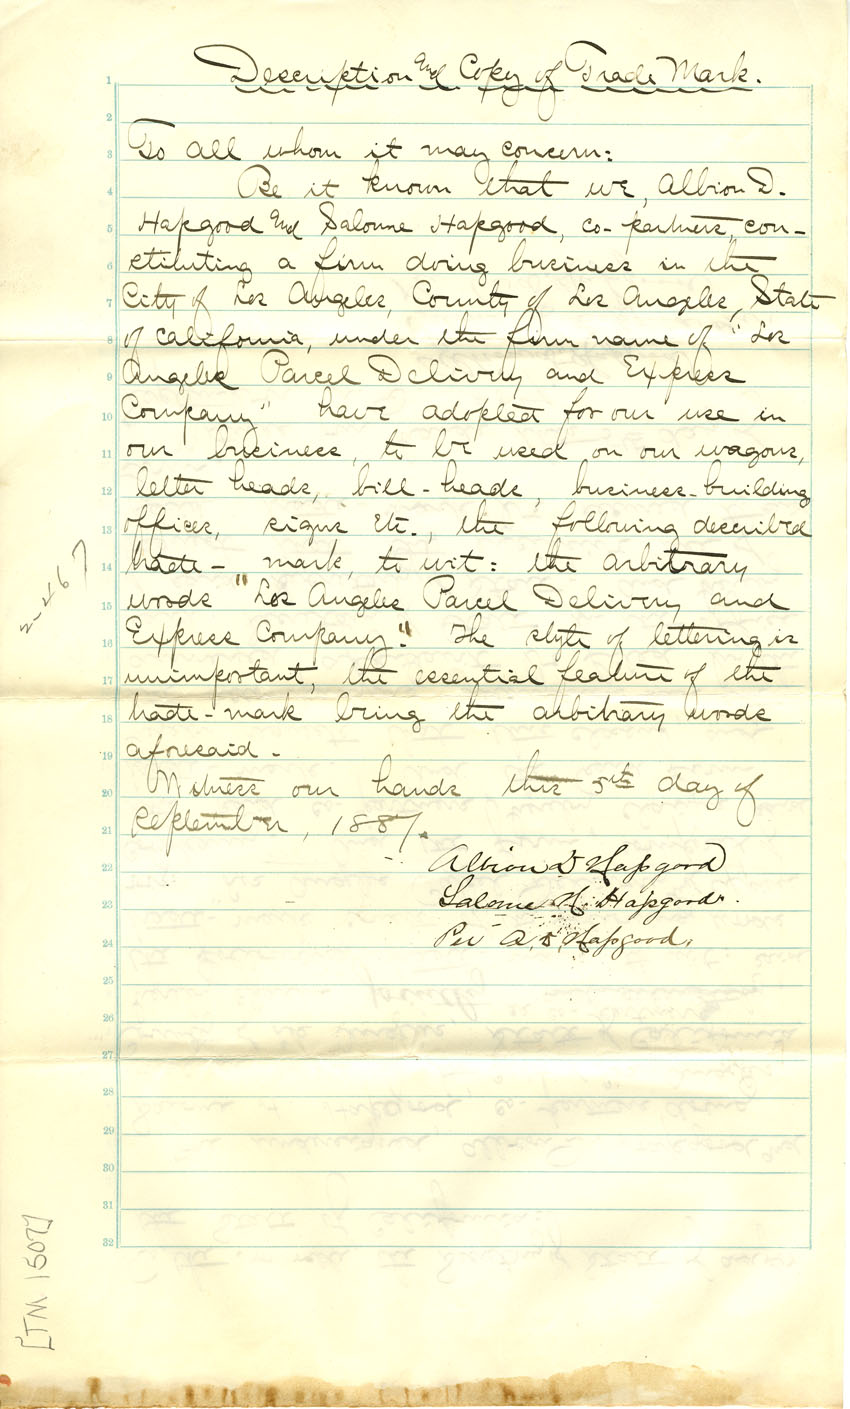 Description and Copy of Trade Mark.
1
2
3 To all whom it may concern:
4 Be it known that we, Albion D.
5 Hapgood and Salome Hapgood, co-partners, con-
6 stituting a firm doing business in the
7 City of Los Angeles, County of Los Angeles, State
8 of California, under the firm name of "Los
9 Angeles Parcel Delivery and Express
10 Company" have adopted for our use in
11 our business, to be used on our wagons,
12 letter heads, bill-heads, business-building
13 offices, signs etc., the following described
14 trade-mark, to wit: the arbitrary
15 words "Los Angeles Parcel Delivery and
16 Express Company." The style of lettering is
17 unimportant, the essential feature of the
18 trade-mark being the arbitrary words
19 aforesaid-
20 Witness our hands this 5th day of
21 September, 1887.
22 Albion D Hapgood
23 Salome H. Hapgood.
24 Per A. D. Hapgood.
25
26
27
28
29
30
31
32
2-267
[TM 1507]